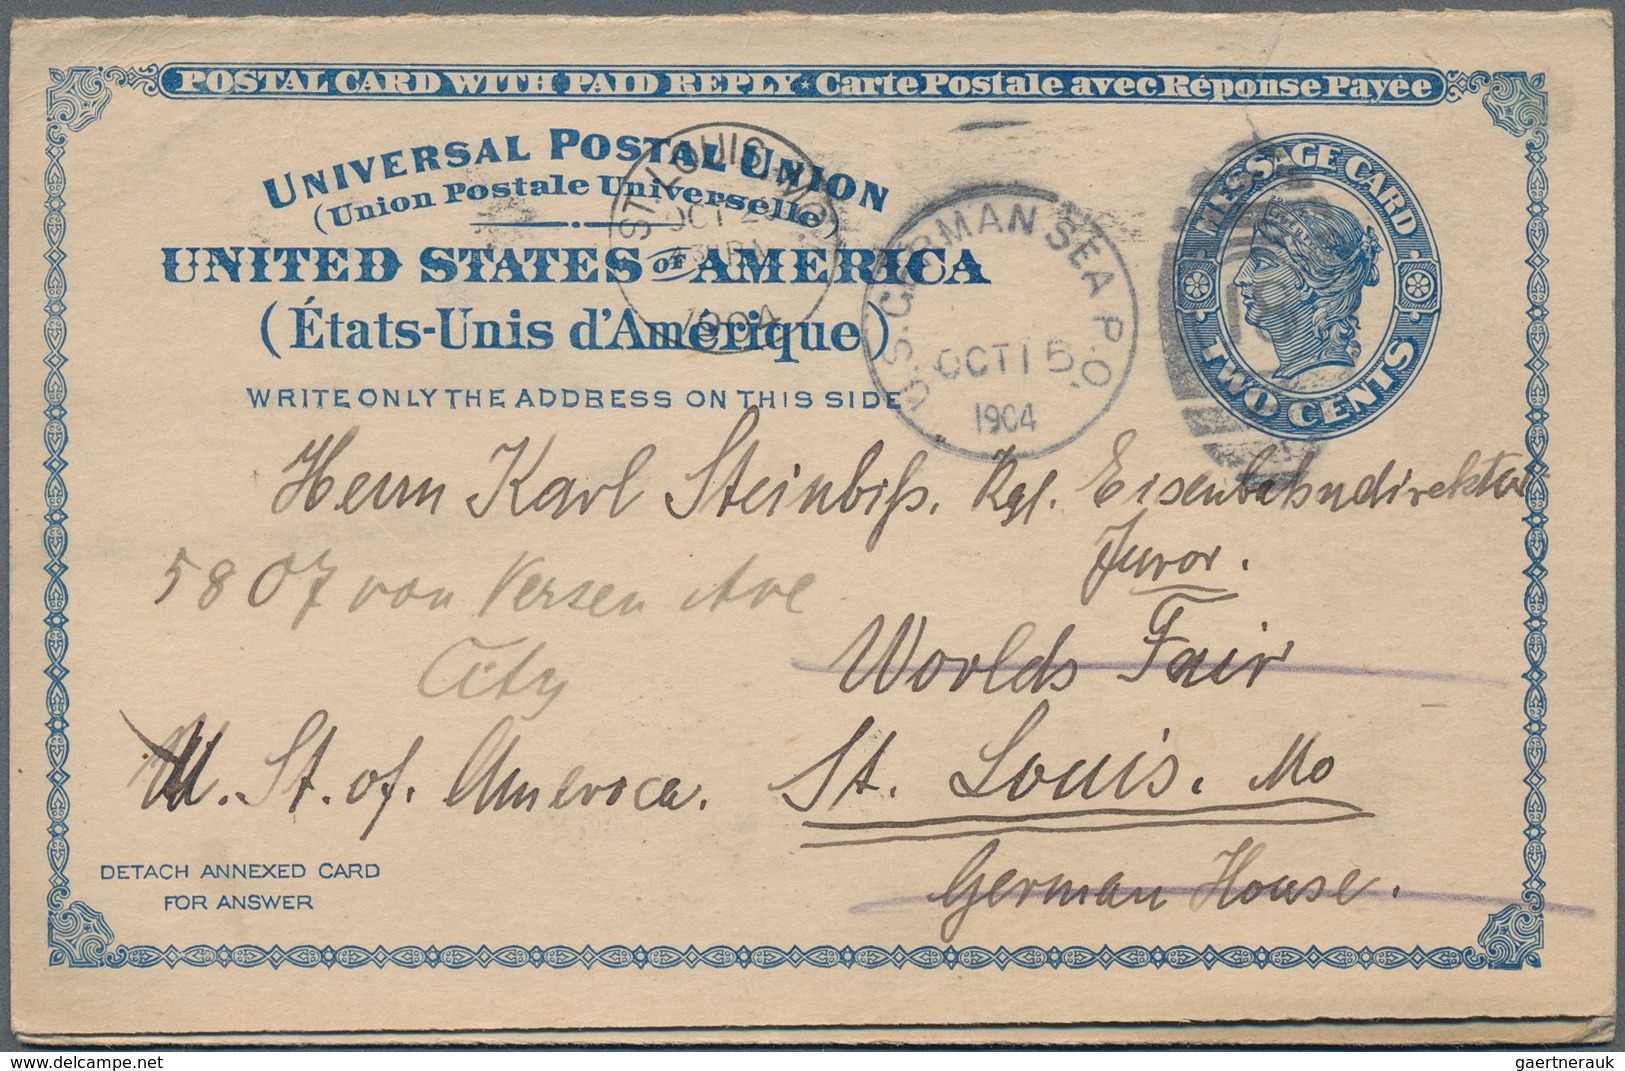 POSTAL CARD WITH PAID REPLY ★ Carte Postale avec Réponse Payée
UNIVERSAL POSTAL UNION
(Union Postale Universelle)
UNITED STATES OF AMERICA
(États-Unis d'Amérique)
WRITE ONLY THE ADDRESS ON THIS SIDE
MESSAGE CARD
TWO CENTS
ST. LOUIS, MO.
OCT
1904
U.S. GERMAN SEA P.O.
OCT 15
1904
Herrn Karl Steinbiß. Kgl. Eisenbahndirektor
Juror.
5807 von Versen Ave
City
Worlds Fair
U. St. of. Ameroca. St. Louis. Mo
German House.
DETACH ANNEXED CARD
FOR ANSWER
delcampe.net
gaertnerauk